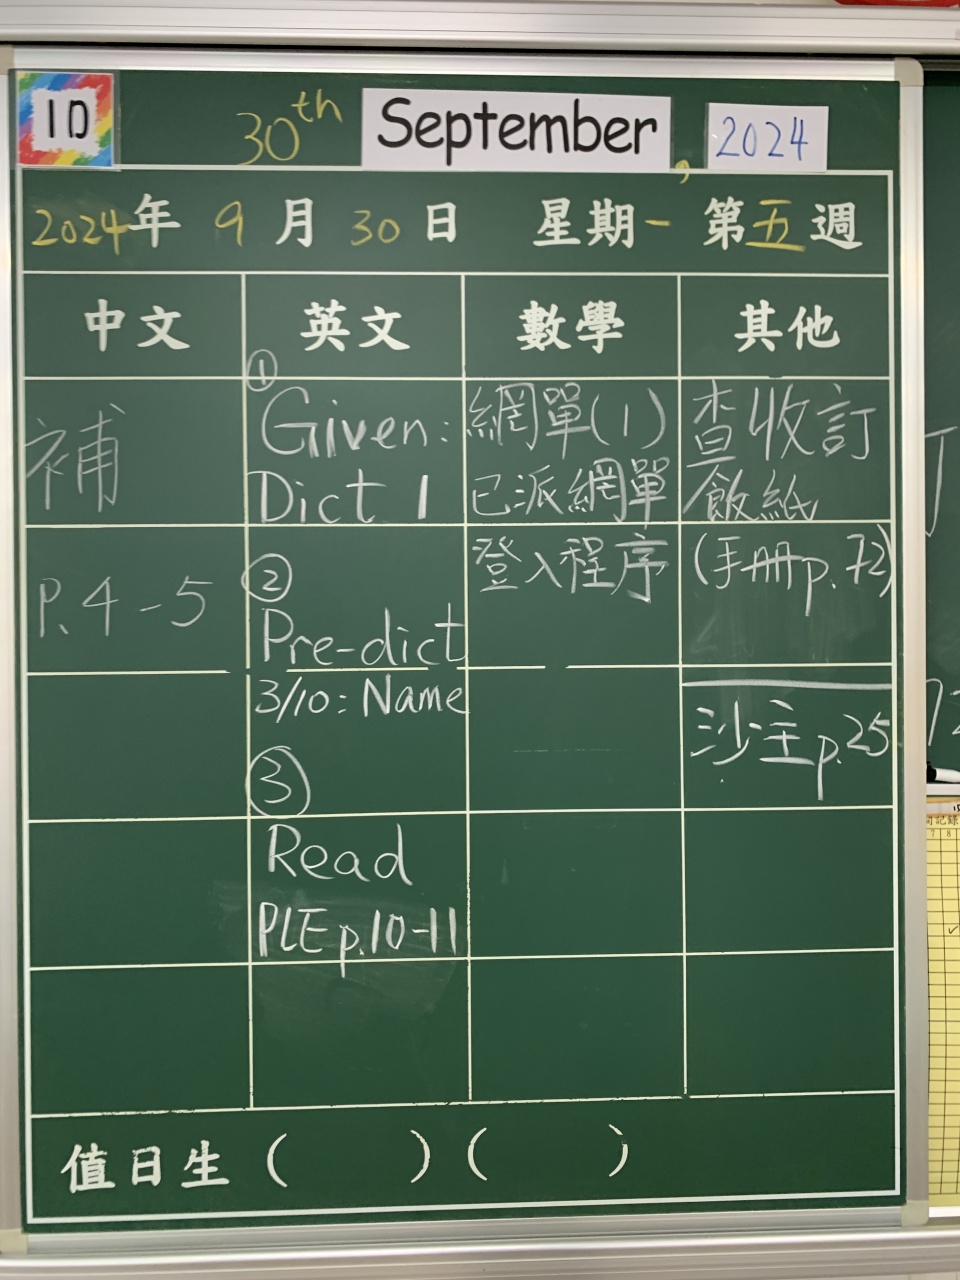 1D
30th September, 2024
2024年 9月 30日 星期一 第五週
中文 英文 數學 其他
補
P.4-5
①
Given:
Dict 1
②
Pre-dict
3/10: Name
③
Read
PLE p.10-11
網單(1)
已派網單
登入程序
查收訂
飯紙
(手冊p.72)
沙主p.25
值日生 ( ) ( )
記錄
7 8